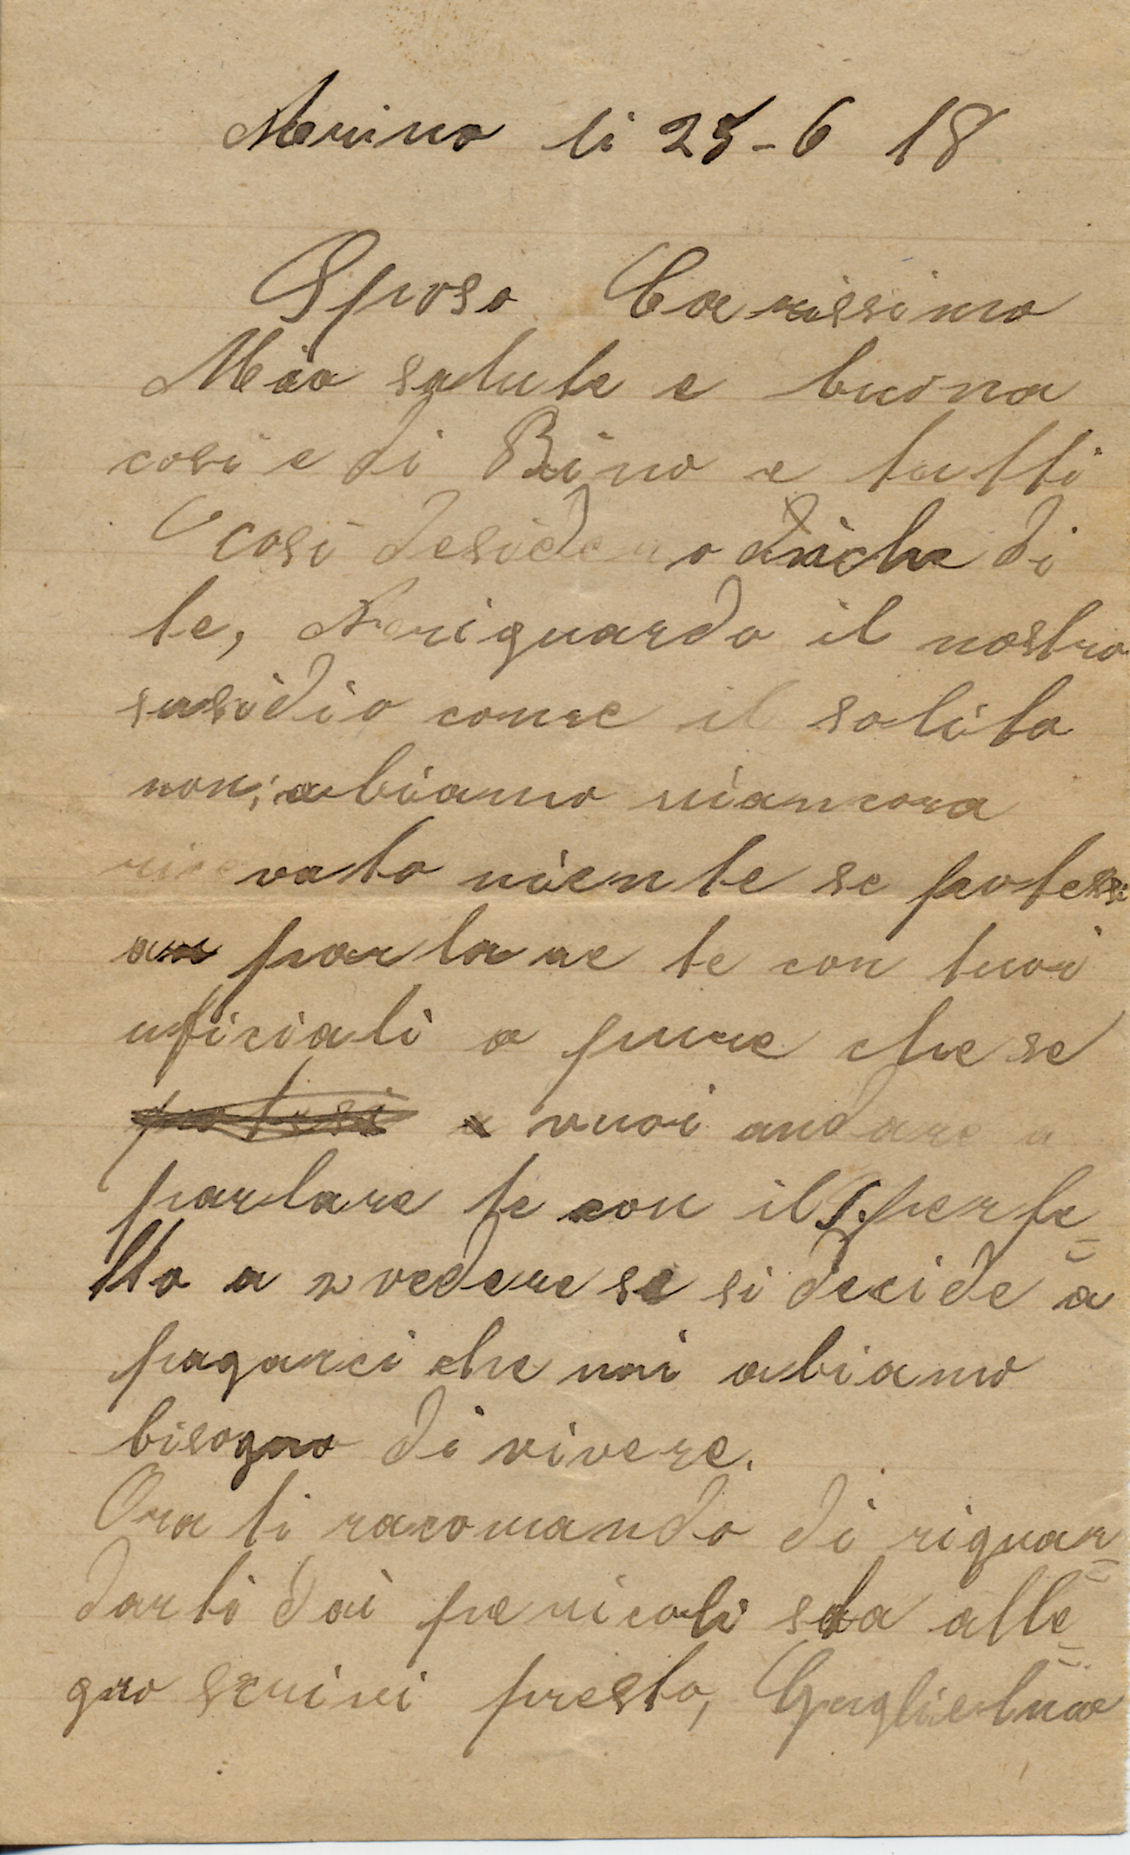 Merino li 25-6 18
Sposo Carissimo
Mia salute e buona
cosi e di Bino e tutti
cosi desidero anche di
te, Ariguardo il nostro
susidio come il solito
non abiamo niancora
ricevato niente se potessi
parlare te con tuoi
uficiali o pure che se
potesi vuoi andare a
parlare te con il S. perfe-
tto a vedere se si decide a
pagarci che noi abiamo
bisogno di vivere.
Ora ti racomando di riguar-
darti dai pericoli sta alle-
gro scrivi presto,